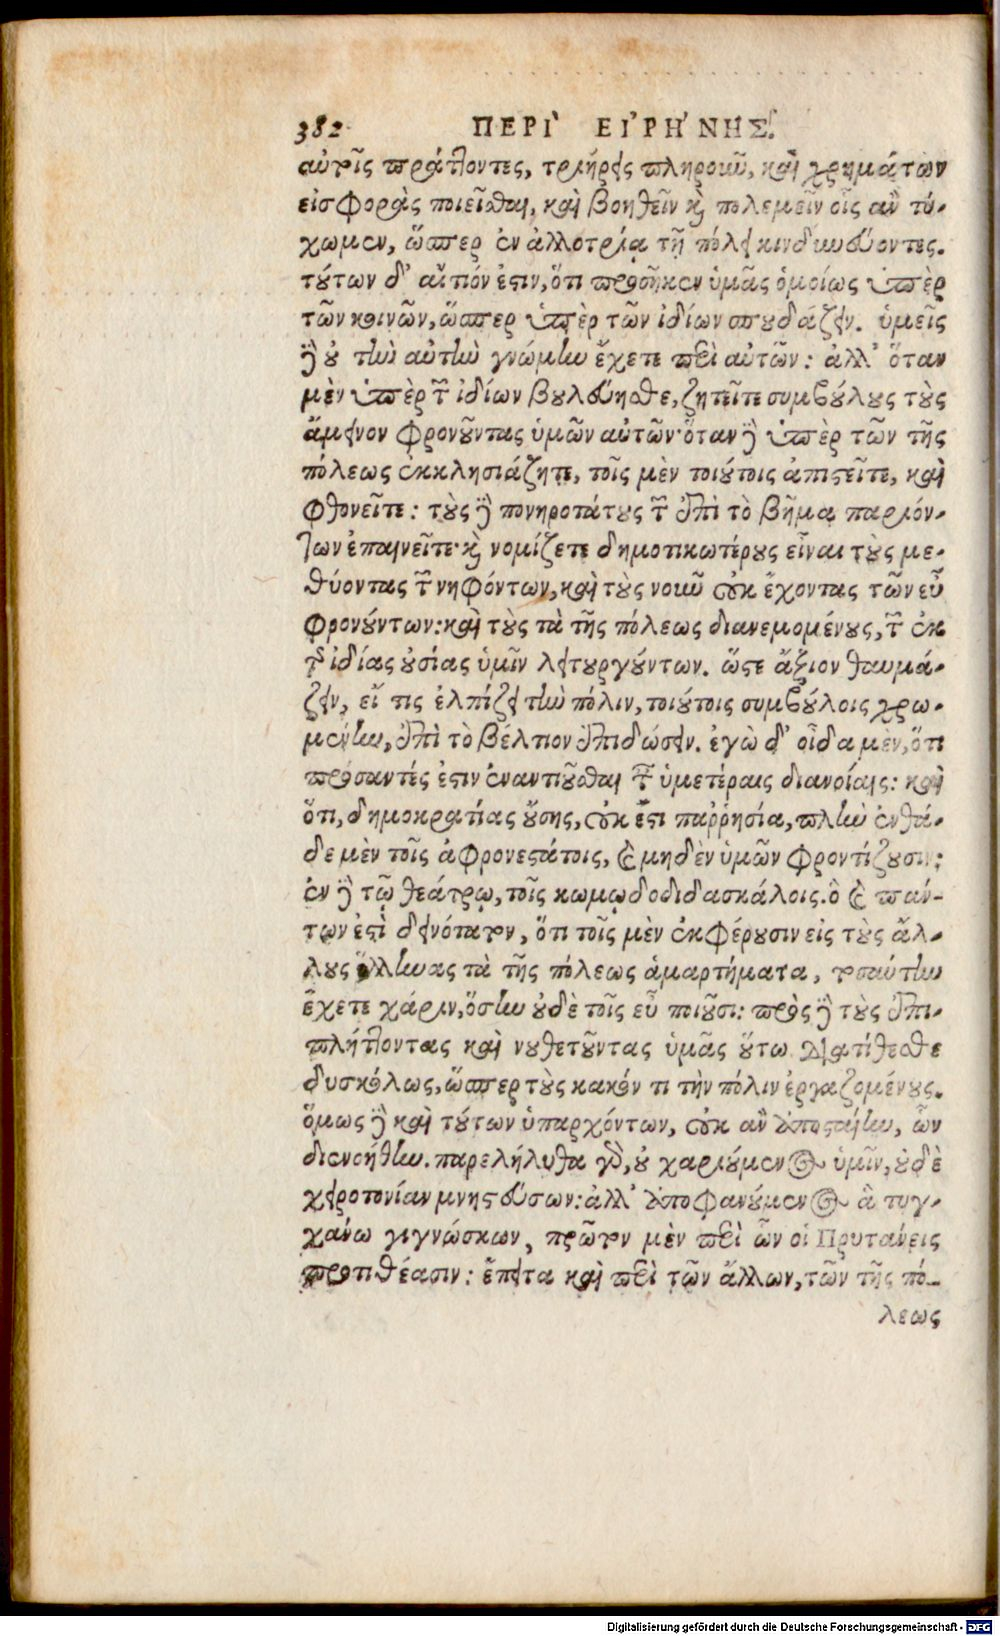 382 ΠΕΡΙ` ΕΙ᾿ΡΗ΄ΝΗΣ.
αὐτοῖς πράττοντες, τριήρεις πληροῦν, καὶ χρημάτων
εἰσφορὰς ποιεῖσθαι, καὶ βοηθεῖν καὶ πολεμεῖν οἷς ἂν τύ-
χωμεν, ὥσπερ ἐν ἀλλοτρίᾳ τῇ πόλει κινδυνεύοντες.
τούτων δ' αἴτιόν ἐστιν, ὅτι προσῆκεν ὑμᾶς ὁμοίως ὑπὲρ
τῶν κοινῶν, ὥσπερ ὑπὲρ τῶν ἰδίων σπουδάζειν. ὑμεῖς
δὲ οὐ τὴν αὐτὴν γνώμην ἔχετε περὶ αὐτῶν: ἀλλ' ὅταν
μὲν ὑπὲρ τῶν ἰδίων βουλεύησθε, ζητεῖτε συμβούλους τοὺς
ἄμεινον φρονοῦντας ὑμῶν αὐτῶν· ὅταν δὲ ὑπὲρ τῶν τῆς
πόλεως ἐκκλησιάζητε, τοῖς μὲν τοιούτοις ἀπιστεῖτε, καὶ
φθονεῖτε: τοὺς δὲ πονηροτάτους τῶν ἐπὶ τὸ βῆμα παριόν-
των ἐπαινεῖτε· καὶ νομίζετε δημοτικωτέρους εἶναι τοὺς με-
θύοντας τῶν νηφόντων, καὶ τοὺς νοῦν οὐκ ἔχοντας τῶν εὖ
φρονούντων: καὶ τοὺς τὰ τῆς πόλεως διανεμομένους, τῶν ἐκ
τῆς ἰδίας οὐσίας ὑμῖν λειτουργούντων. ὥστε ἄξιον θαυμά-
ζειν, εἴ τις ἐλπίζει τὴν πόλιν, τοιούτοις συμβούλοις χρω-
μένην, ἐπὶ τὸ βέλτιον ἐπιδώσειν. ἐγὼ δ' οἶδα μὲν, ὅτι
πρόσαντές ἐστιν ἐναντιοῦσθαι ταῖς ὑμετέραις διανοίαις: καὶ
ὅτι, δημοκρατίας οὔσης, οὐκ ἔστι παῤῥησία, πλὴν ἐνθά-
δε μὲν τοῖς ἀφρονεστάτοις, καὶ μηδὲν ὑμῶν φροντίζουσιν:
ἐν δὲ τῷ θεάτρῳ, τοῖς κωμῳδοδιδασκάλοις. ὃ καὶ πάν-
των ἐστὶ δεινότατον, ὅτι τοῖς μὲν ἐκφέρουσιν εἰς τοὺς ἄλ-
λους ἕλληνας τὰ τῆς πόλεως ἁμαρτήματα, τοσαύτην
ἔχετε χάριν, ὅσην οὐδὲ τοῖς εὖ ποιοῦσι: πρὸς δὲ τοὺς ἐπι-
πλήττοντας καὶ νουθετοῦντας ὑμᾶς οὕτω διατίθεσθε
δυσκόλως, ὥσπερ τοὺς κακόν τι τὴν πόλιν ἐργαζομένους.
ὅμως δὲ καὶ τούτων ὑπαρχόντων, οὐκ ἂν ἀποσταίην, ὧν
διενοήθην. παρελήλυθα γὰρ, οὐ χαριούμενος ὑμῖν, οὐδὲ
χειροτονίαν μνηστεύσων: ἀλλ' ἀποφανούμενος ἃ τυγ-
χάνω γιγνώσκων, πρῶτον μὲν περὶ ὧν οἱ Πρυτάνεις
προτιθέασιν: ἔπειτα καὶ περὶ τῶν ἄλλων, τῶν τῆς πό-
λεως
Digitalisierung gefördert durch die Deutsche Forschungsgemeinschaft - DFG